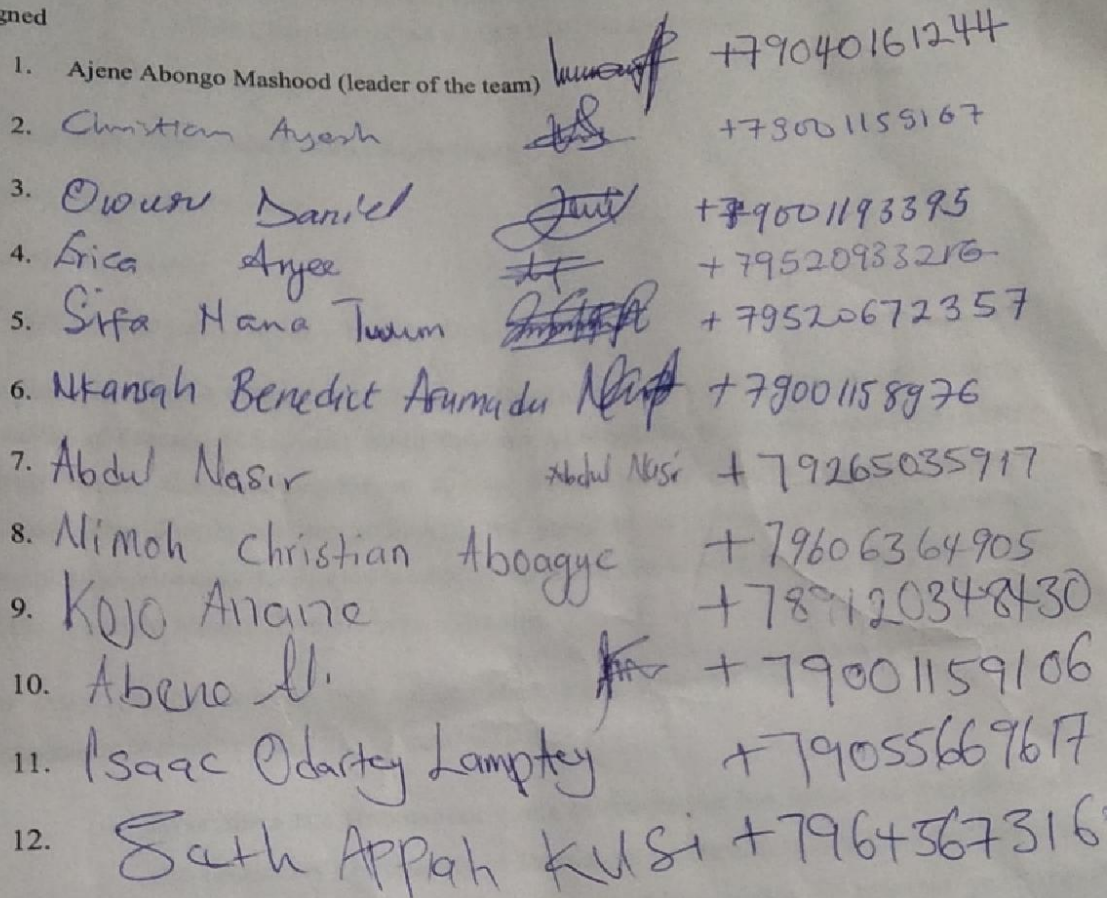 gned
1. Ajene Abongo Mashood (leader of the team) +79040161244
2. Christian Ayesh +79001159167
3. Owusu Daniel +79001193395
4. Erica Anjee +79520933216
5. Sifa Nana Twum +79520672357
6. Nkansah Benedict Asumadu +79001158976
7. Abdul Nasir Abdul Nasir +79265035917
8. Nimoh Christian Aboagye +79606364905
9. Kojo Anane
10. Abena +79001159106
11. Isaac Odartey Lamptey +79055669617
12. Appiah Kusi +7964567316